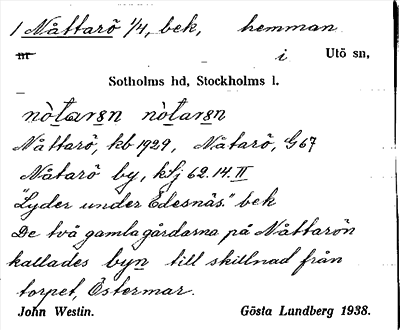 1 Nåttarö 1/4, bek, hemman
nr i Utö sn,
Sotholms hd, Stockholms l.
nò̀tarɜn nòtarɜn
Nåttarö, kb 1929, Nåtarö, G67
Nåtarö by, kfj 62.14.II
"Lyder under Edesnäs." bek
De två gamla gårdarna på Nåttarön
kallades byn till skillnad från
torpet, Östermar.
John Westin. Gösta Lundberg 1938.